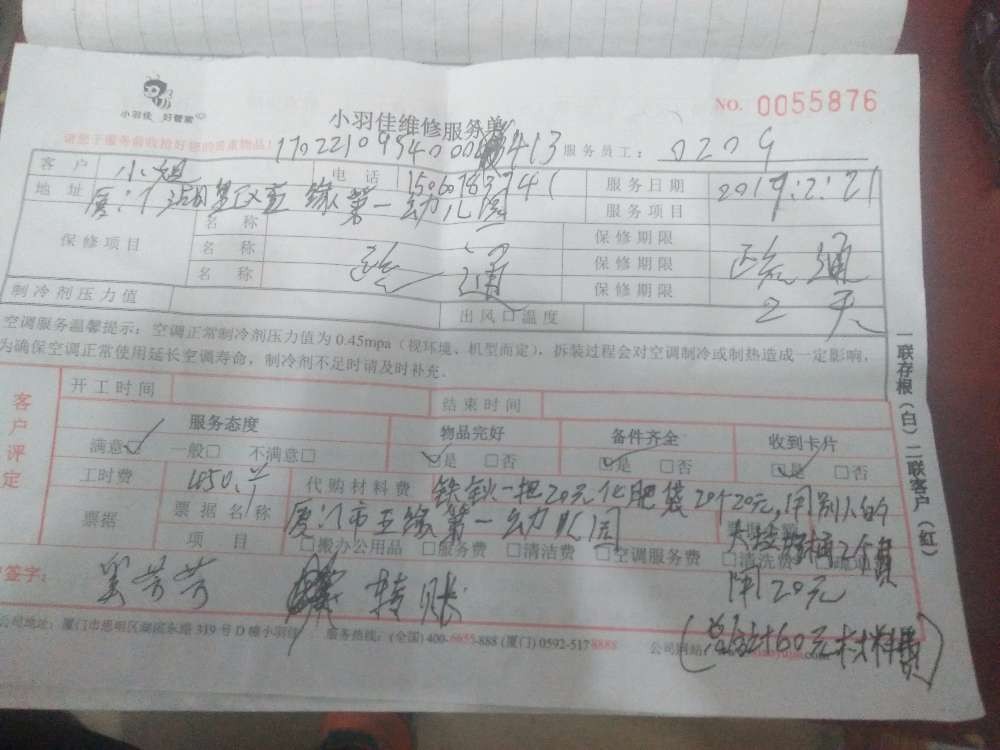 小羽佳 好管家
小羽佳维修服务单
NO. 0055876
请您于服务前收拾好您的贵重物品!
服务员工: 0209
客 户 小姐 电 话 服务日期 2019.2.21
地 址 厦门湖里区五缘第一幼儿园 服务项目
保修项目
名 称 保修期限
名 称 疏通 保修期限 疏通
名 称 保修期限 2天
制冷剂压力值 出风口温度
空调服务温馨提示:空调正常制冷剂压力值为0.45mpa(视环境、机型而定),拆装过程会对空调制冷或制热造成一定影响,
为确保空调正常使用延长空调寿命,制冷剂不足时请及时补充。
客户评定
开工时间 结束时间
服务态度 物品完好 备件齐全 收到卡片
满意☑ 一般□ 不满意□ ☑是 □否 ☑是 □否 ☑是 □否
工时费 代购材料费 铁钞一把20元化肥袋20个20元,用别人的
票据 票据名称 厦门市五缘第一幼儿园
项 目 □搬办公用品 □服务费 □清洁费 □空调服务费 □清洗费
用20元
签字: 吴芳芳 转账
(总合计60元材料费)
公司地址:厦门市思明区湖滨东路319号D幢小羽佳 服务热线:(全国)400-6655-888 (厦门)0592-5178888 公司网站:
一联存根(白)二联客户(红)